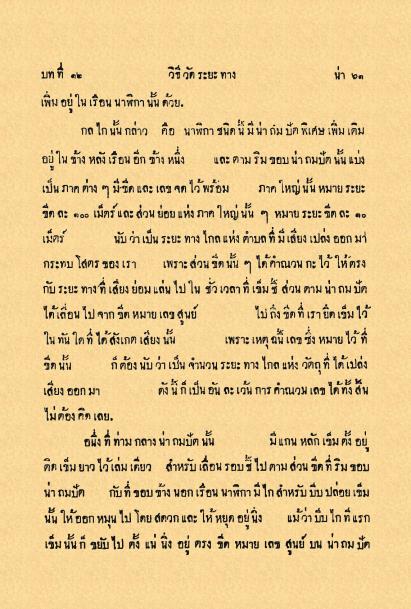 บทที่ ๑๒ วิธี วัด ระยะ ทาง น่า ๖๑
เพิ่น อยู่ ใน เรือน นาฬิกา นั้น ด้วย.
กล ไก นั้น กล่าว คือ นาฬิกา ชนิด นี้ มี น่า ถม ปัด พิเศษ เพิ่ม เติม
อยู่ ใน ข้าง หลัง เรือน อีก ข้าง หนึ่ง และ ตาม ริม ขอบ น่า ถม ปัด นั้น แบ่ง
เป็น ภาค ต่าง ๆ มี ขีด และ เลข จด ไว้ พร้อม ภาค ใหญ่ นั้น หมาย ระยะ
ขีด ละ ๑๐๐ เม็ตร์ และ ส่วน ย่อย แห่ง ภาค ใหญ่ นั้น ๆ หมาย ระยะ ขีด ละ ๑๐
เม็ตร์ นับ ว่า เป็น ระยะ ทาง ไกล แห่ง ตำบล ที่ มี เสียง เปล่ง ออก มา
กระทบ โสตร ของ เรา เพราะ ส่วน ขีด นั้น ๆ ได้ คำณวน กะ ไว้ ให้ ตรง
กับ ระยะ ทาง ที่ เสียง ย่อม แล่น ไป ใน ชั่ว เวลา ที่ เข็ม ชี้ ส่วน ตาม น่า ถม ปัด
ได้ เลื่อน ไป จาก ขีด หมาย เลข สูนย์ ไป ถึง ขีด ที่ เรา ยึด เข็ม ไว้
ใน ทัน ใด ที่ ได้ สังเกต เสียง นั้น เพราะ เหตุ ฉนี้ เลข ซึ่ง หมาย ไว้ ที่
ขีด นั้น ก็ ต้อง นับ ว่า เป็น จำนวน ระยะ ทาง ไกล แห่ง วัตถุ ที่ ได้ เปล่ง
เสียง ออก มา ดัง นี้ ก็ เป็น อัน ละ เว้น การ คำณวม เลข ได้ ทั้ง สิ้น
ไม่ ต้อง คิด เลย.
อนึ่ง ที่ ท่าม กลาง น่า ถม ปัด นั้น มี แกน หลัก เข็ม ตั้ง อยู่
ติด เข็ม ยาว ไว้ เล่ม เดียว สำหรับ เลื่อน รอบ ชี้ ไป ตาม ส่วน ขีด ที่ ริม ขอบ
น่า ถมปัด กับ ที่ ขอบ ข้าง นอก เรือน นาฬิกา มี ไก สำหรับ บีบ ปล่อย เข็ม
นั้น ให้ ออก หมุน ไป โดย สดวก และ ให้ หยุด อยู่ นิ่ง แม้ ว่า บีบ ไก ที่ แรก
เข็ม นั้น ก็ ขยับ ไป ตั้ง แน่ นิ่ง อยู่ ตรง ขีด หมาย เลข สูนย์ บน น่า ถม ปัด